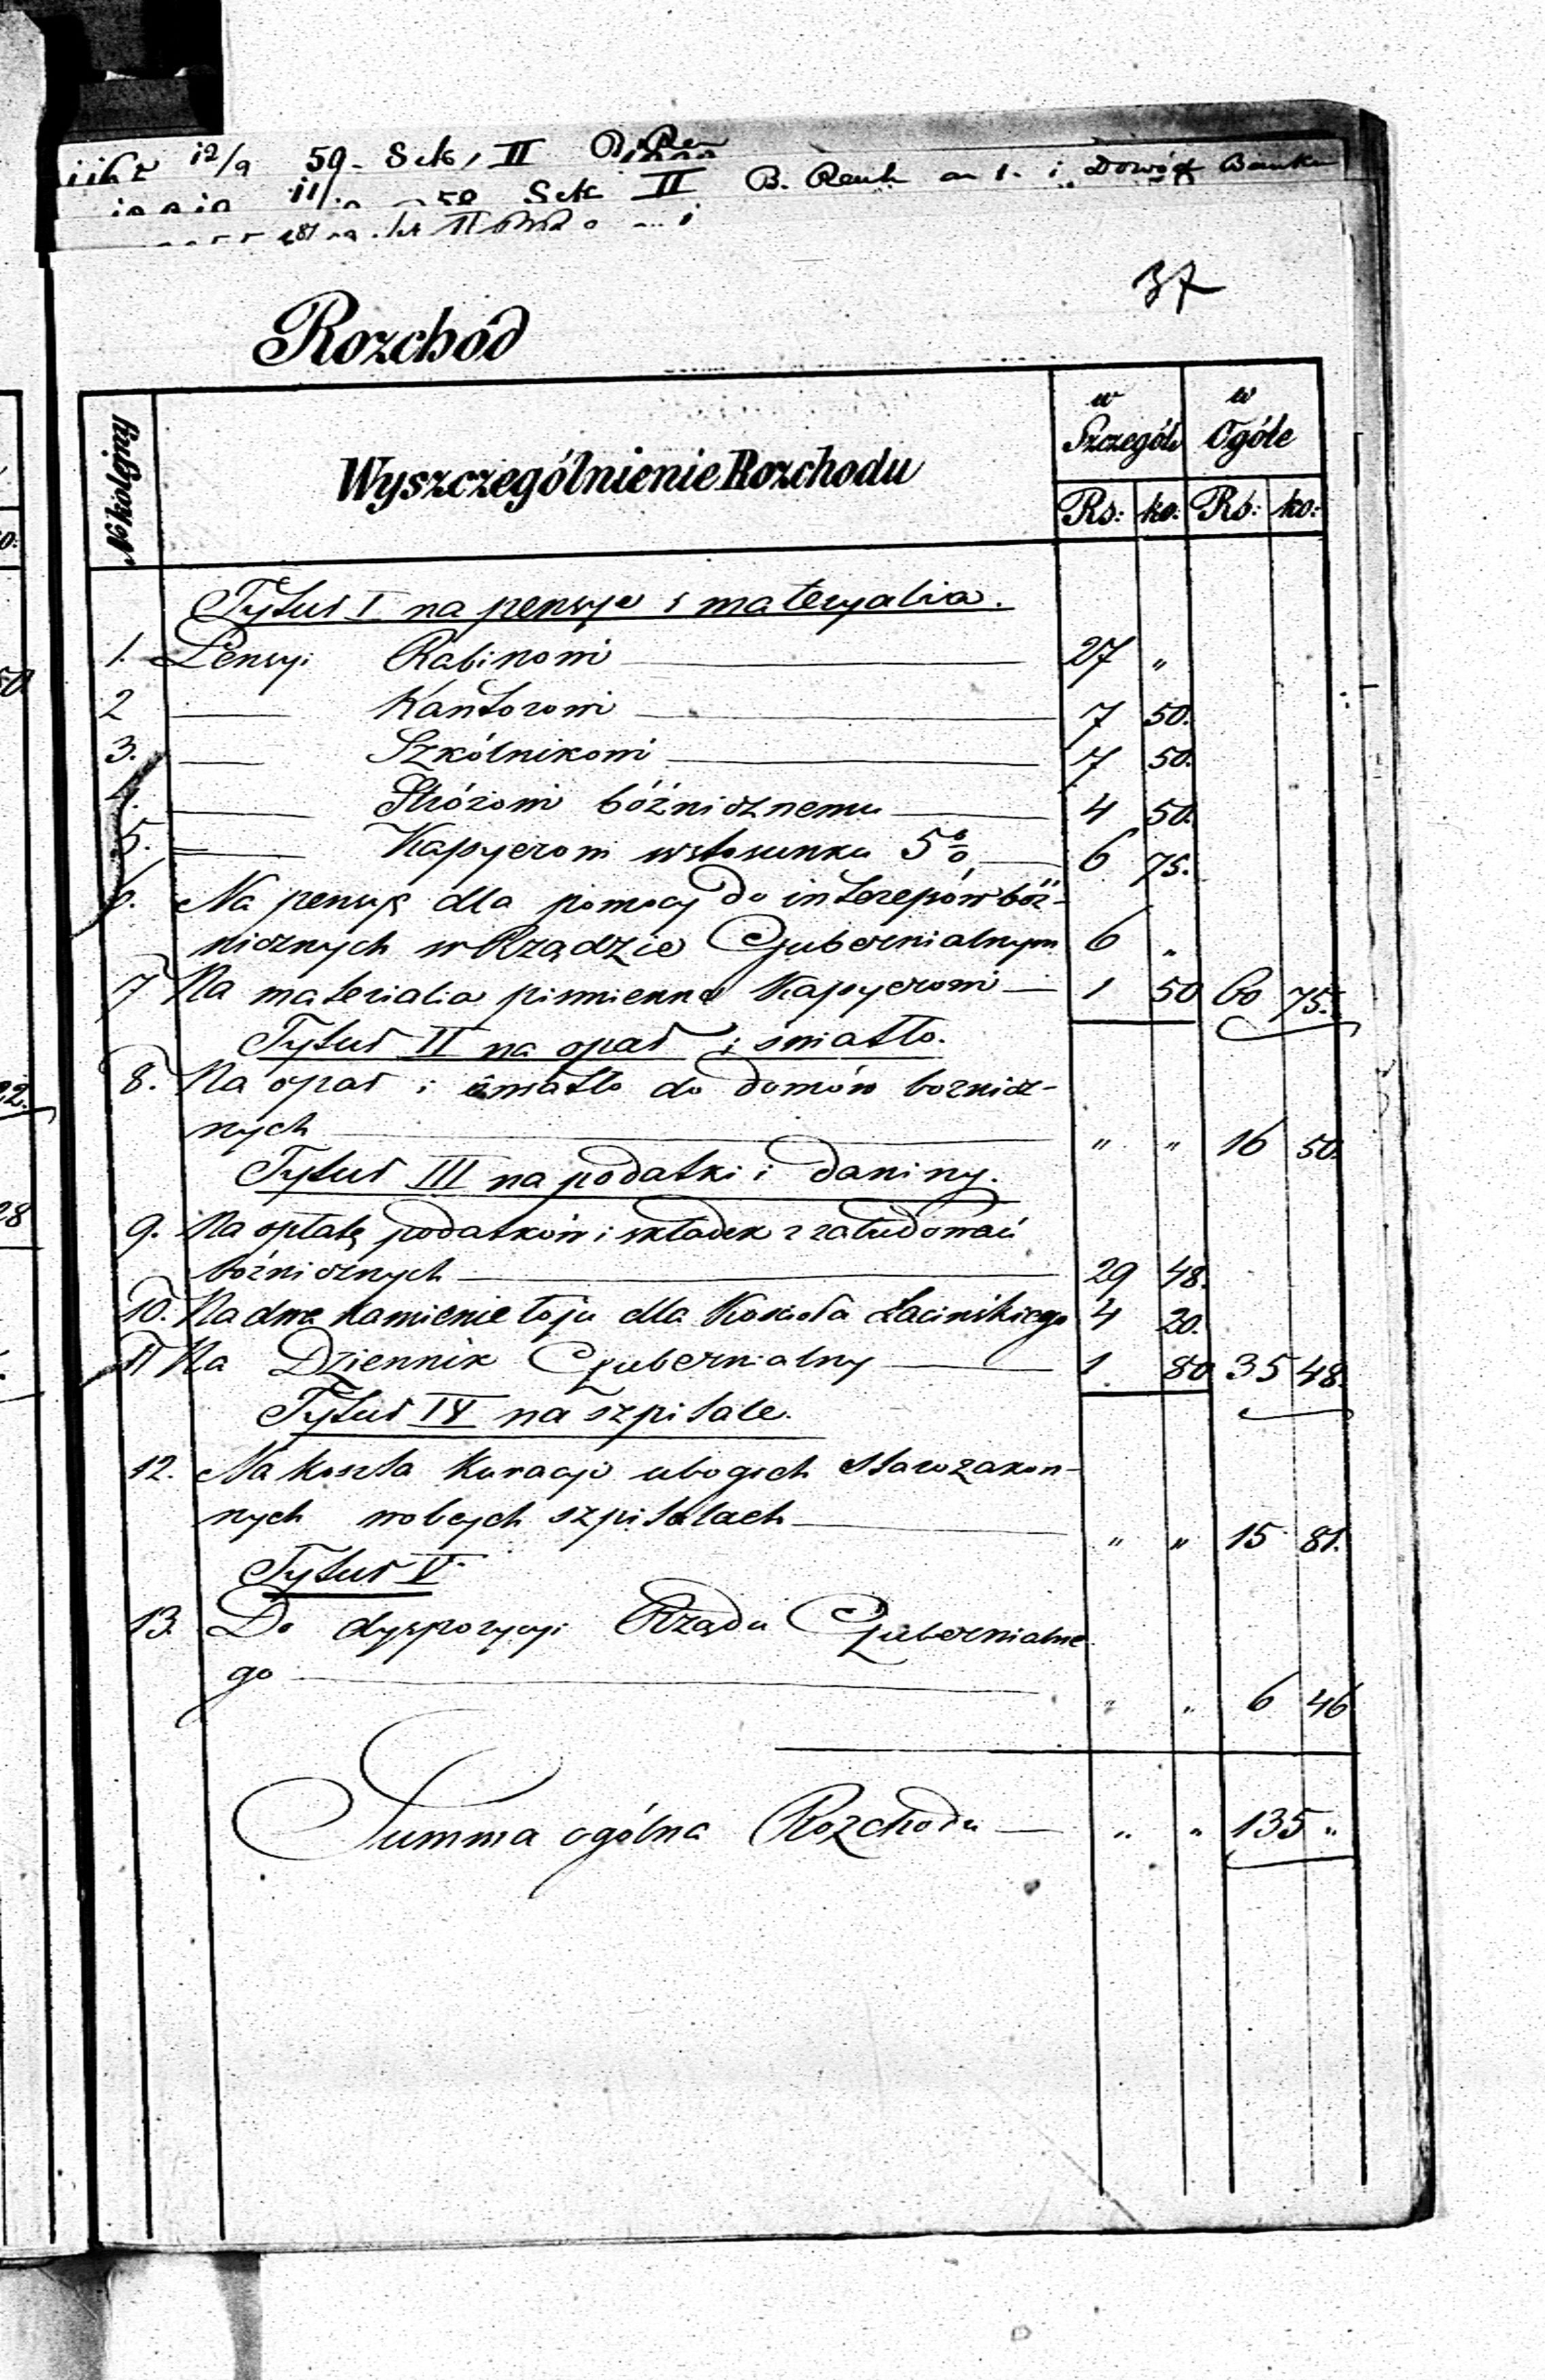 12/9 59 - Sek, II
11/10 58 Sek II B. Rent an 1. i Dowód Banku
37
Rozchód
No kolejny
Wyszczególnienie Rozchodu
w Szczególe
w Ogóle
Rs: ko: Rs: ko:
Tytuł I na pensye i materyalia.
1. Pensyi Rabinowi 27 "
2 Kantorowi 7 50.
3. Szkólnikowi 7 50.
4. Stróżowi bóźnicznemu 4 50.
5. Kassyerowi wstosunku 5% 6 75.
6. Na pensyę dla pomocy do interessów bóź-
nicznych w Rządzie Gubernialnym 6 "
7 Na materialia piśmienne Kassyerowi 1 50 60 75.
Tytuł II na opał i światło.
8. Na opał i światło do domów boznicz-
nych " " 16 50.
Tytuł III na podatki i daniny.
9. Na opłatę podatków i składek z zabudowań
bóźnicznych 29 48.
10. Na dwa kamienie łoju dla Kościoła Łacińskiego 4 20.
11 Na Dziennik Gubernialny 1 80 35 48.
Tytuł IV na szpitale.
12. Na koszta kuracyi ubogich starozakon-
nych wobcych szpitalach " " 15 81.
Tytuł V.
13. Do dyspozycyi Rządu Gubernialne
go " " 6 46
Summa ogólna Rozchodu " " 135 "